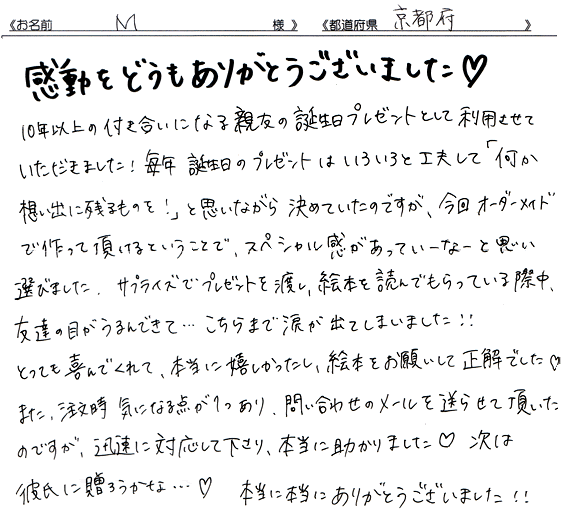 《お名前 M 様》 《都道府県 京都府 》
感動をどうもありがとうございました♡
10年以上の付き合いになる親友の誕生日プレゼントとして利用させて
いただきました！毎年 誕生日のプレゼントはいろいろと工夫して「何か
想い出に残るものを！」と思いながら決めていたのですが、今回オーダーメイド
で作って頂けるということで、スペシャル感があっていーなーと思い
選びました。サプライズでプレゼントを渡し、絵本を読んでもらっている際中、
友達の目がうるんできて…こちらまで涙が出てしまいました！！
とっても喜んでくれて、本当に嬉しかったし、絵本をお願いして正解でした♡
また、注文時 気になる点が1つあり、問い合わせのメールを送らせて頂いた
のですが、迅速に対応して下さり、本当に助かりました♡ 次は
彼氏に贈ろうかな…♡ 本当に本当にありがとうございました！！